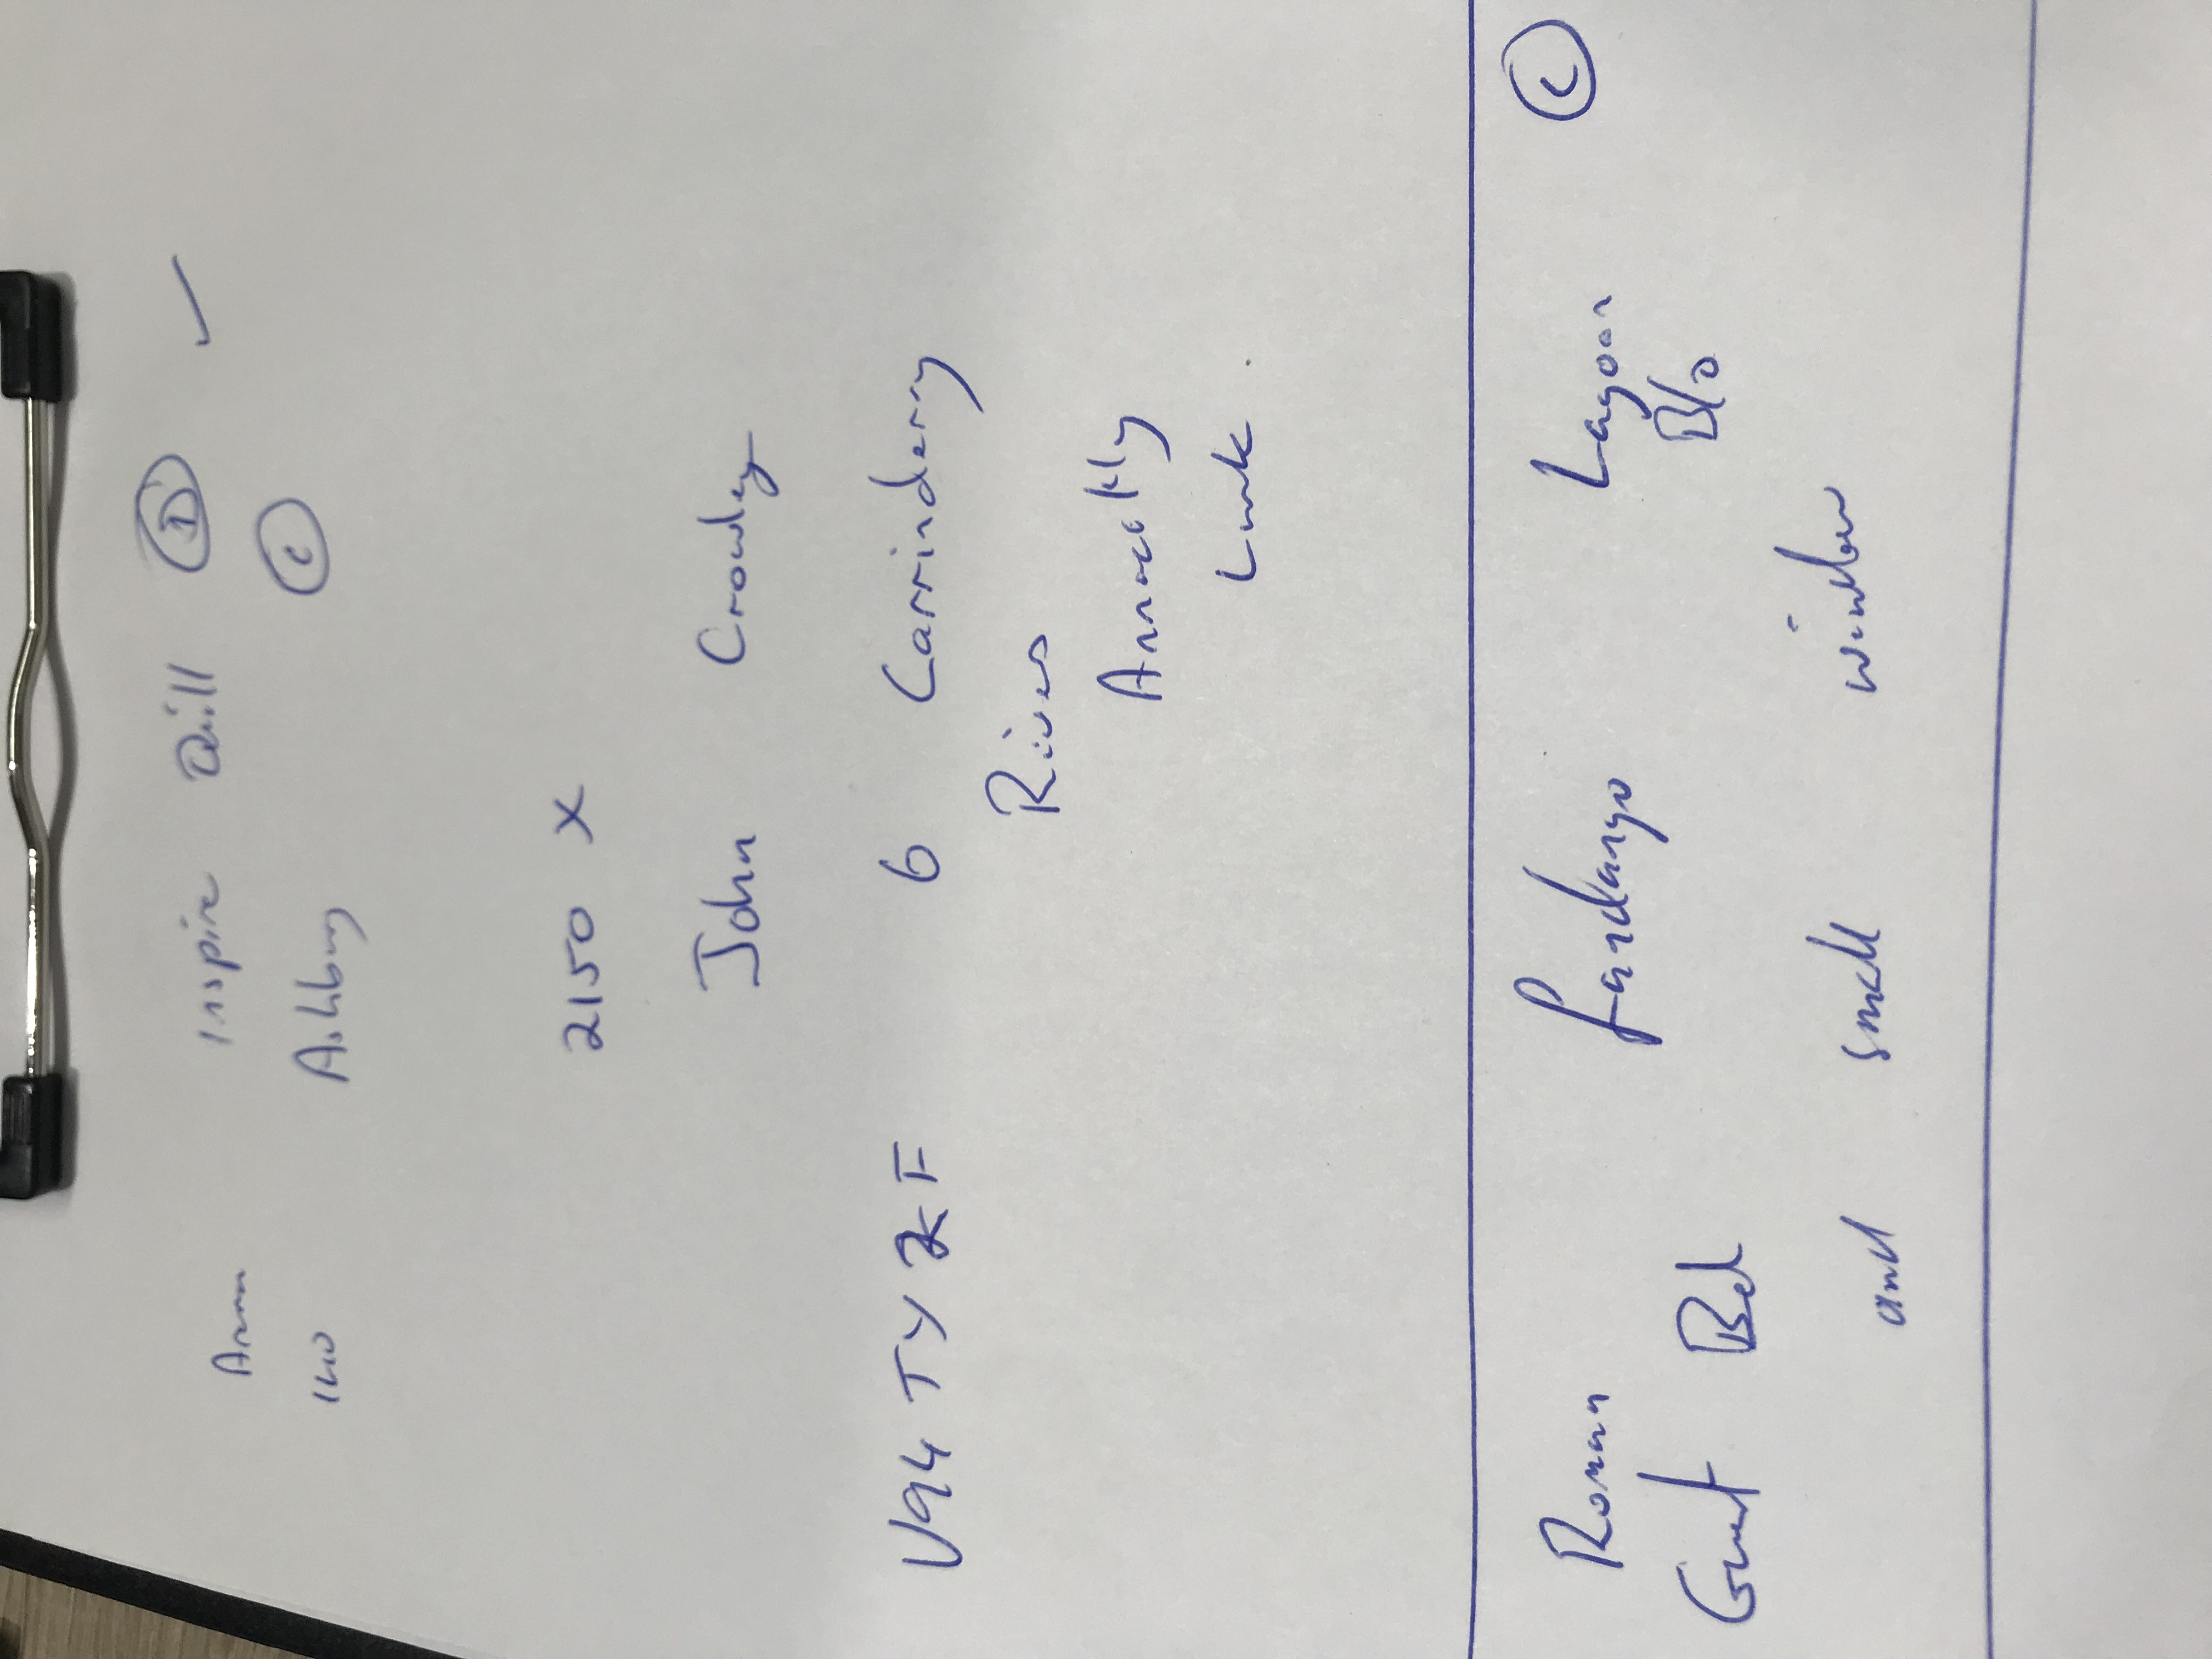 Inspire Quill D ✓
Ashbury C
2150 X
John Crowley
V94 TY2F 6 Carrinderry
Rivers
Annacotty
Lmk.
Roman Fandango Lagoon C
Guest Bed B/o
and small window